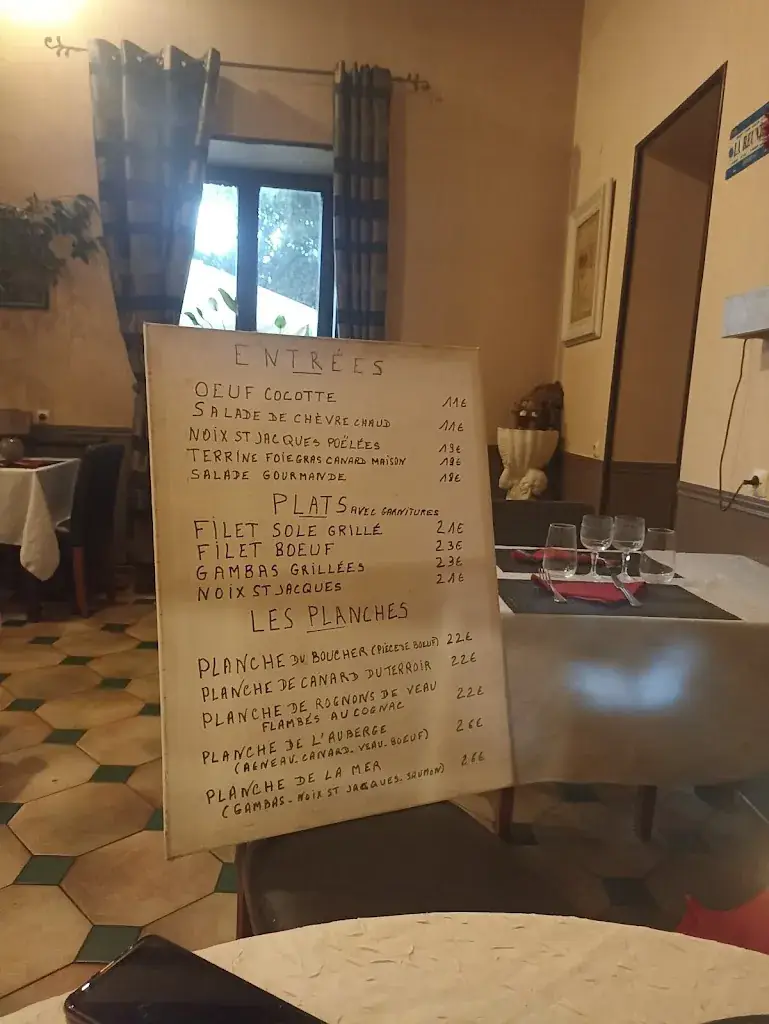 ENTRÉES
OEUF COCOTTE 11€
SALADE DE CHÈVRE CHAUD 11€
NOIX ST JACQUES POÊLÉES 19€
TERRINE FOIE GRAS CANARD MAISON 18€
SALADE GOURMANDE 18€
PLATS AVEC GARNITURES
FILET SOLE GRILLÉ 21€
FILET BOEUF 23€
GAMBAS GRILLÉES 23€
NOIX ST JACQUES 21€
LES PLANCHES
PLANCHE DU BOUCHER (PIÈCE DE BOEUF) 22€
PLANCHE DE CANARD DU TERROIR 22€
PLANCHE DE ROGNONS DE VEAU 22€
FLAMBÉS AU COGNAC
PLANCHE DE L'AUBERGE 26€
(AGNEAU. CANARD. VEAU. BOEUF)
PLANCHE DE LA MER 26€
(GAMBAS - NOIX ST JACQUES. SAUMON)